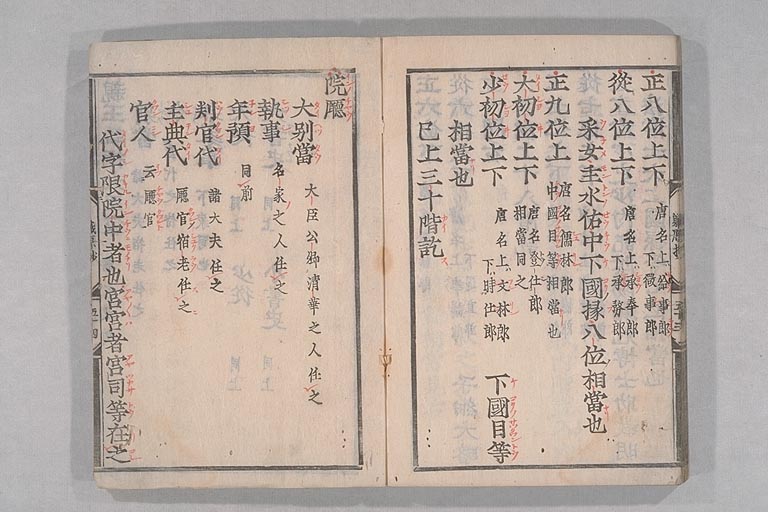 正八位上下 唐名上給事郎
下徴事郎
從八位上下 唐名上承奉郎
下承務郎
采女主水佑中下國掾八位相當也
正九位上 唐名儒林郎
中國目等相當也
大初位上下 唐名登仕郎
相當同之
少初位上下 唐名上文林郎
下將仕郎
下國目等
相當也
已上三十階訖
院廳
大別當 大臣公卿清華之人任之
執事 名家之人任之
年預 同前
判官代 諸大夫任之
主典代 廳官宿老任之
官人 云廳官
代字限院中者也宮宮者宮司等在之